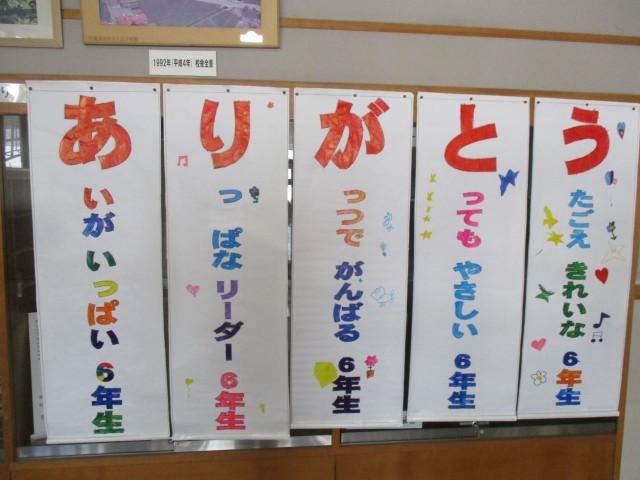 1992年(平成4年) 校舎全景
あいがいっぱい6年生
りっぱなリーダー6年生
がっつでがんばる6年生
とってもやさしい6年生
うたごえきれいな6年生